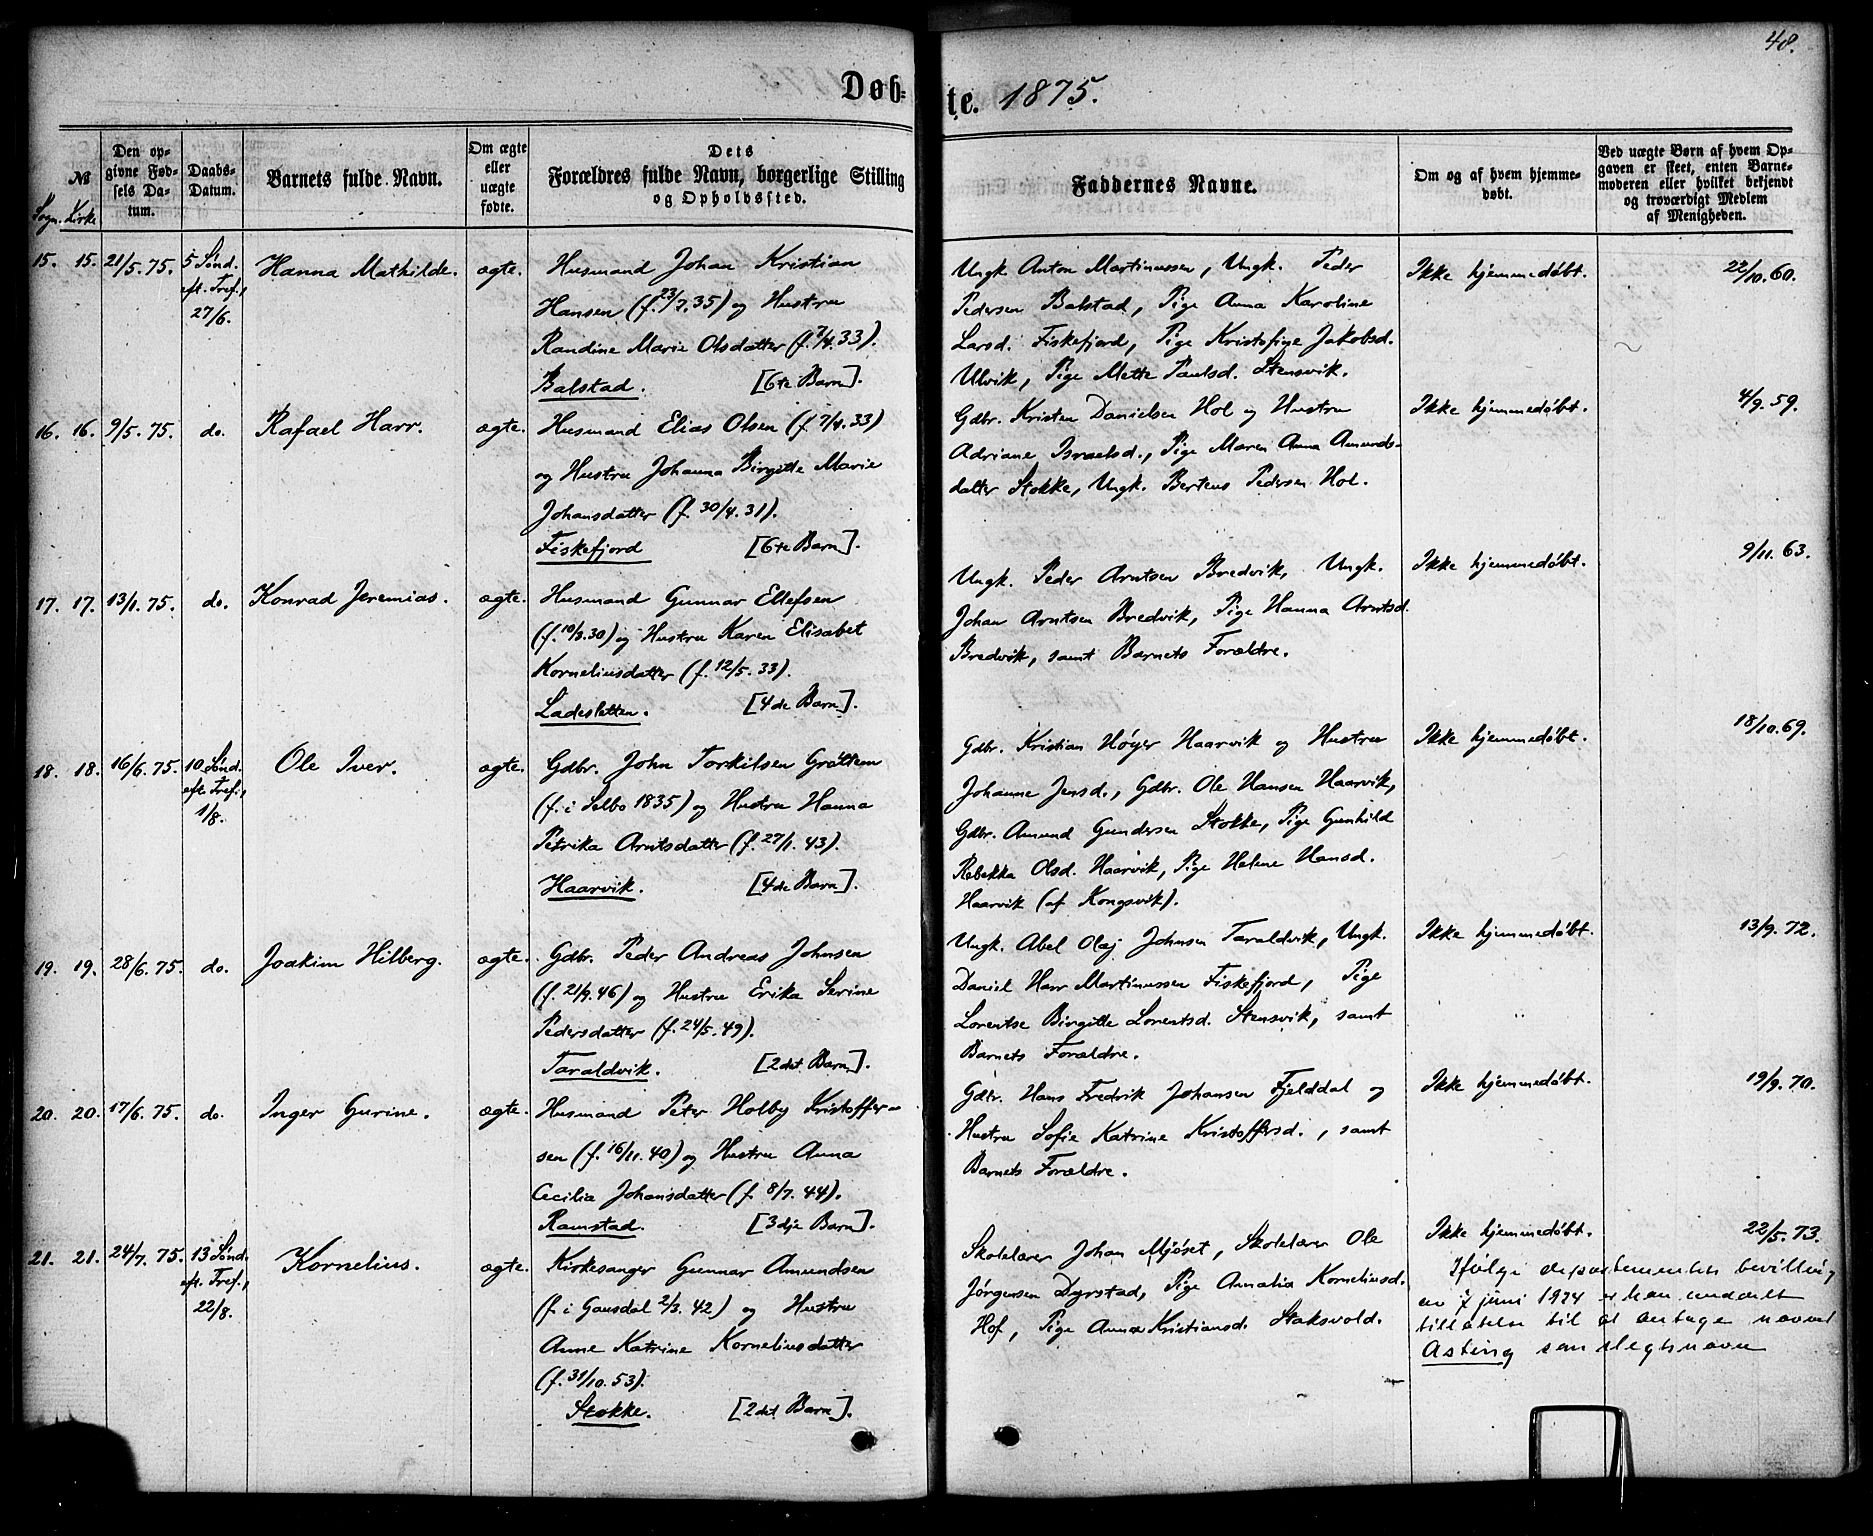 48.
Døb-
te. 1875.
№
Sogn. Kirke
Den op-
givne Fød-
sels Da-
tum.
Daabs-
Datum.
Barnets fulde Navn.
Om ægte
eller
uægte
fødte.
Dets
Forældres fulde Navn, borgerlige Stilling
og Opholdssted.
Faddernes Navne.
Om og af hvem hjemme-
døbt.
Ved uægte Børn af hvem Op-
gaven er skeet, enten Barne-
moderen eller hvilket bekjendt
og troværdigt Medlem
af Menigheden.
15. 15. 21/5. 75. 5 Sønd.
eft. Tref.,
27/6.
Hanna Mathilde. ægte.
Husmand Johan Kristian
Hansen (f. 23/7. 35) og Hustru
Randine Marie Olsdatter (f. 7/4. 33).
Balstad. [6te Barn].
Ungk. Anton Martinussen, Ungk. Peder
Pedersen Balstad, Pige Anna Karoline
Larsd. Fiskefjord, Pige Kristofige Jakobsd.
Ulvik, Pige Mette Paulsd. Stensvik.
Ikke hjemmedøbt. 22/10. 60.
16. 16. 9/5. 75. do. Rafael Harr. ægte.
Husmand Elias Olsen (f. 7/4. 33)
og Hustru Johanna Birgitte Marie
Johansdatter (f. 30/4. 31).
Fiskefjord [6te Barn].
Gdbr. Kristen Danielsen Hol og Hustru
Adriane Israelsd., Pige Maren Anna Amunds-
datter Stokke, Ungk. Berteus Pedersen Hol.
Ikke hjemmedøbt. 4/9. 59.
17. 17. 13/1. 75. do. Konrad Jeremias. ægte.
Husmand Gunnar Ellefsen
(f. 10/3. 30) og Hustru Karen Elisabet
Korneliusdatter (f. 12/5. 33).
Ladesletten. [4de Barn].
Ungk. Peder Arntsen Bredvik, Ungk.
Johan Arntsen Bredvik, Pige Hanna Arntsd.
Bredvik, samt Barnets Forældre.
Ikke hjemmedøbt. 9/11. 63.
18. 18. 16/6. 75. 10 Sønd.
eft. Tref.,
1/8.
Ole Iver. ægte.
Gdbr. John Torkilsen Grøttem
(f. i Selbo 1835) og Hustru Hanna
Petrika Arntsdatter (f. 27/1. 43).
Haarvik. [4de Barn].
Gdbr. Kristian Høyer Haarvik og Hustru
Johanne Jensd., Gdbr. Ole Hansen Haarvik,
Gdbr. Amund Gundersen Stokke, Pige Gunhild
Rebekka Olsd. Haarvik, Pige Helene Hansd.
Haarvik (af Kongsvik).
Ikke hjemmedøbt. 18/10. 69.
19. 19. 28/6. 75. do. Joakim Hilberg. ægte.
Gdbr. Peder Andreas Johnsen
(f. 21/9. 46) og Hustru Erika Serine
Pedersdatter (f. 24/5. 49).
Taraldvik. [2det Barn].
Ungk. Abel Olaj Johnsen Taraldvik, Ungk.
Daniel Harr Martinussen Fiskefjord, Pige
Lorentse Birgitte Lorentsd. Stensvik, samt
Barnets Forældre.
Ikke hjemmedøbt. 13/9. 72.
20. 20. 17/6. 75. do. Inger Gurine. ægte.
Husmand Peter Holby Kristoffer-
sen (f. 16/11. 40) og Hustru Anna
Cecilia Johansdatter (f. 8/7. 44).
Ramstad. [3dje Barn].
Gdbr. Hans Fredrik Johansen Fjelddal og
Hustru Sofie Katrine Kristoffersd., samt
Barnets Forældre.
Ikke hjemmedøbt. 19/9. 70.
21. 21. 24/7. 75. 13 Sønd.
eft. Tref.,
22/8.
Kornelius. ægte.
Kirkesanger Gunnar Amundsen
(f. i Gausdal 2/3. 42) og Hustru
Anne Katrine Korneliusdatter
(f. 31/10. 53).
Stokke. [2det Barn].
Skolelærer Johan Mjøset, Skolelærer Ole
Jørgensen Dyrstad, Pige Amalia Korneliusd.
Hof, Pige Anna Kristiansd. Staksvold.
Ikke hjemmedøbt. 22/5. 73.
Ifølge departementets bevilling
av 7 juni 1924 er han meddelt
tillatelse til at antage navnet
Asting som slegtsnavn